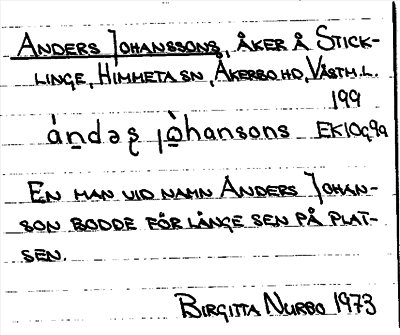 ANDERS JOHANSSONS, ÅKER Å STICK-
LINGE, HIMMETA SN, ÅKERBO HD, VÄSTM.L.
199
ándəʂ jòhansons EK10q9a
EN MAN VID NAMN ANDERS JOHAN-
SON BODDE FÖR LÄNGE SEN PÅ PLAT-
SEN.
BIRGITTA NURBO 1973